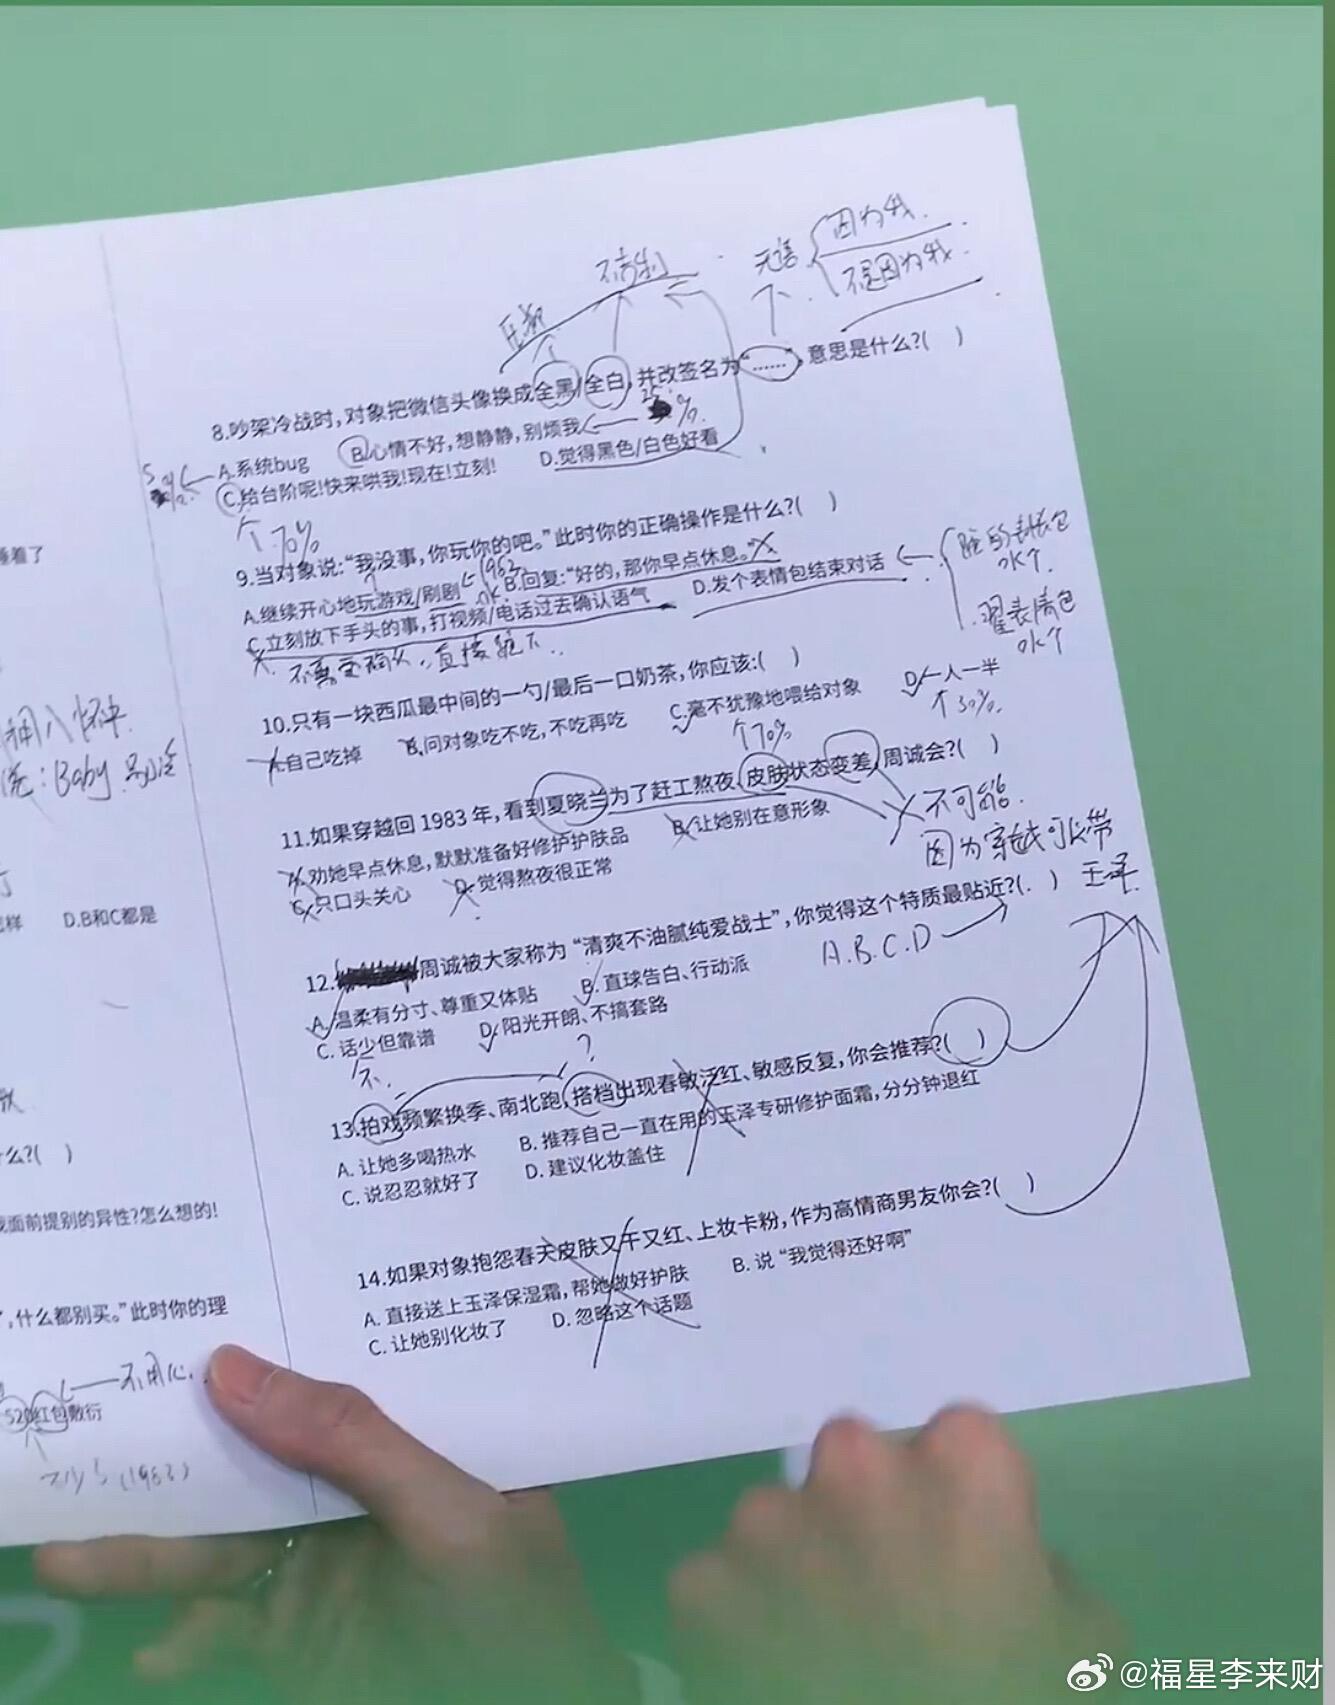 睡着了
拥入怀中
洗：Baby 别
怎样 D.B和C都是
什么?( )
我面前提别的异性?怎么想的!
了,什么都别买。”此时你的理
不用心
520红包敷衍
(1983)
不高兴
无语
因为我
不是因为我
8.吵架冷战时,对象把微信头像换成全黑/全白,并改签名为“……”,意思是什么?( )
A.系统bug B.心情不好,想静静,别烦我
25%
5%
C.给台阶呢!快来哄我!现在!立刻! D.觉得黑色/白色好看
个70%
9.当对象说:“我没事,你玩你的吧。”此时你的正确操作是什么?( )
A.继续开心地玩游戏/刷剧 B.回复:“好的,那你早点休息。”
1983 ok
C.立刻放下手头的事,打视频/电话过去确认语气 D.发个表情包结束对话
的表情包
ok个
表情包
ok个
不需要确认，直接
10.只有一块西瓜最中间的一勺/最后一口奶茶,你应该:( )
A.自己吃掉 B.问对象吃不吃,不吃再吃 C.毫不犹豫地喂给对象 D.一人一半
↑70%
↑30%
11.如果穿越回1983年,看到夏晓兰为了赶工熬夜,皮肤状态变差,周诚会?( )
A.劝她早点休息,默默准备好修护护肤品 B.让她别在意形象
C.只口头关心 D.觉得熬夜很正常
不可能
因为穿越可以带
玉泽
12.周诚被大家称为“清爽不油腻纯爱战士”,你觉得这个特质最贴近?( )
A.B.C.D
A. 温柔有分寸、尊重又体贴 B. 直球告白、行动派
C. 话少但靠谱 D. 阳光开朗、不搞套路
不
?
13.拍戏频繁换季、南北跑,搭档出现春敏泛红、敏感反复,你会推荐?( )
A. 让她多喝热水 B. 推荐自己一直在用的玉泽专研修护面霜,分分钟退红
C. 说忍忍就好了 D. 建议化妆盖住
14.如果对象抱怨春天皮肤又干又红、上妆卡粉,作为高情商男友你会?( )
A. 直接送上玉泽保湿霜,帮她做好护肤 B. 说“我觉得还好啊”
C. 让她别化妆了 D. 忽略这个话题
@福星李来财